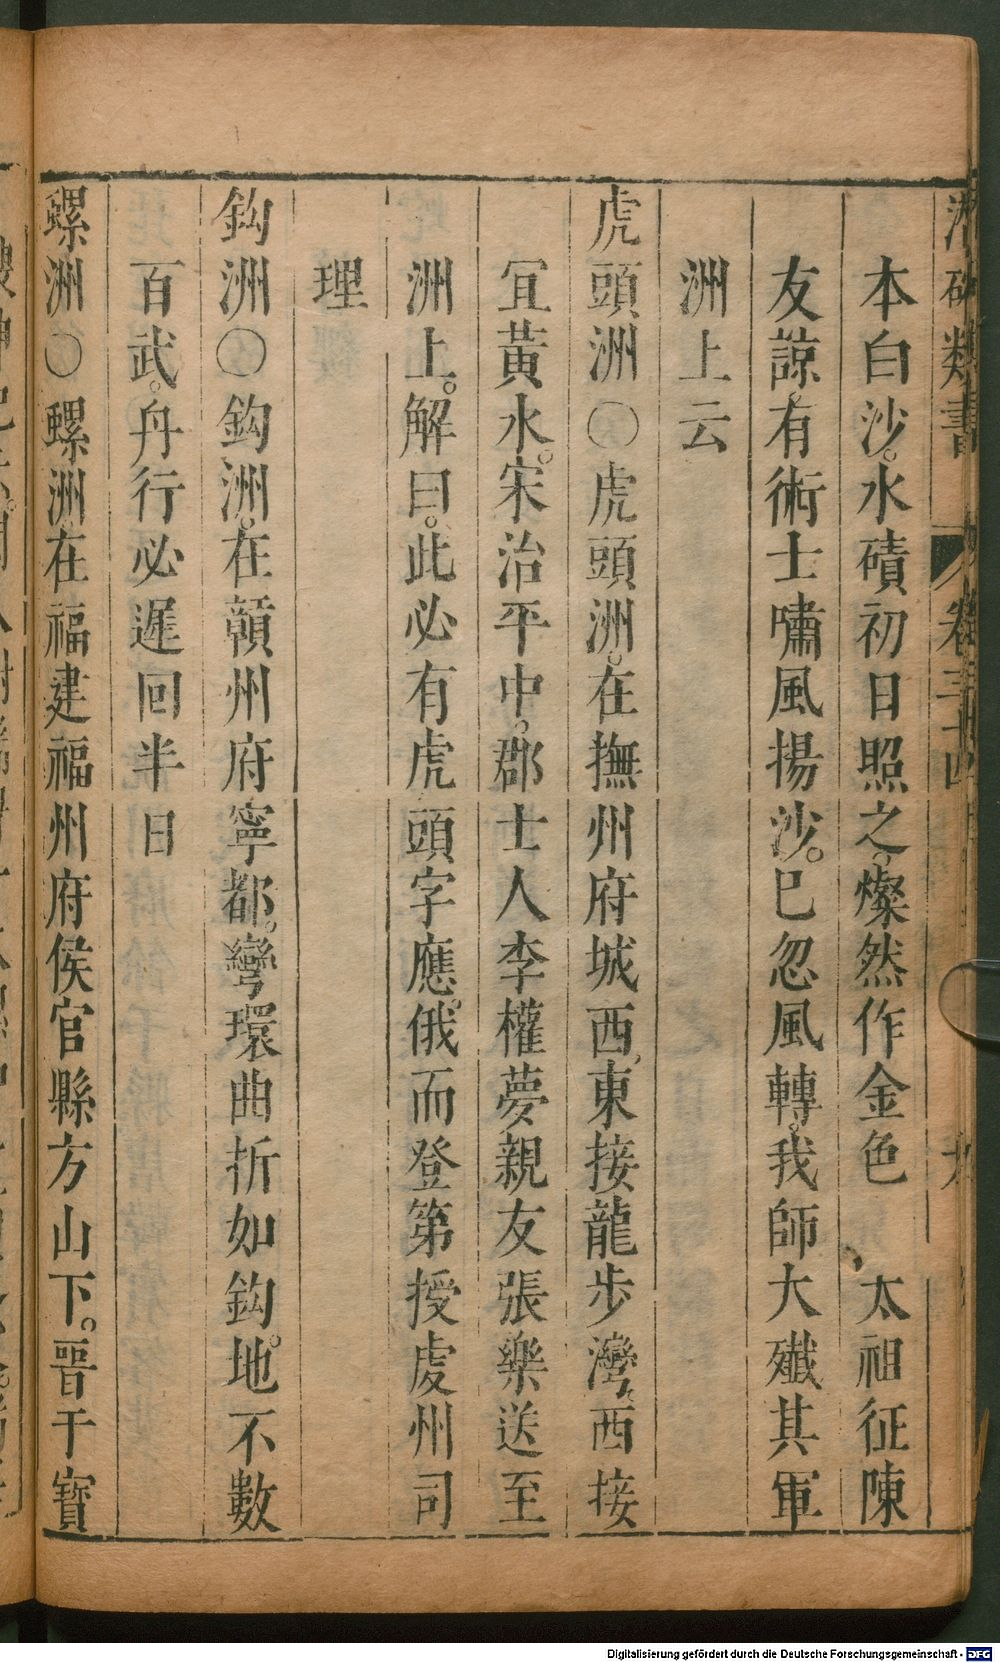 類書 卷三十四
本白沙。水磧初日照之。燦然作金色 太祖征陳
友諒。有術士嘯風揚沙。巳忽風轉。我師大殲其軍
洲上云
虎頭洲〇虎頭洲。在撫州府城西。東接龍步灣。西接
宜黃水。宋治平中。郡士人李權夢親友張樂送至
洲上。解曰。此必有虎頭字應。俄而登第授虔州司
理
鈎洲〇鈎洲。在贛州府寧都。彎環曲折如鈎。地不數
百武。舟行必遲回半日
螺洲〇螺洲在福建福州府侯官縣方山下。晉于寶
Digitalisierung gefördert durch die Deutsche Forschungsgemeinschaft - DFG